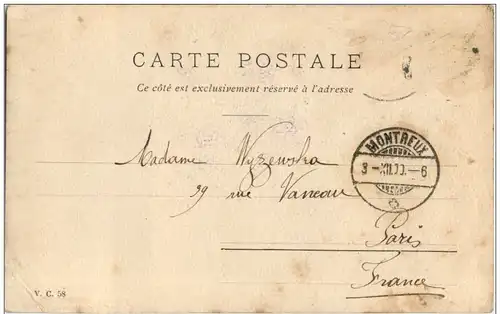 CARTE POSTALE
Ce côté est exclusivement réservé à l'adresse
MONTREUX
3-XII.00.-6
Madame Wyzewska
39 rue Vaneau
Paris
France
V. C. 58